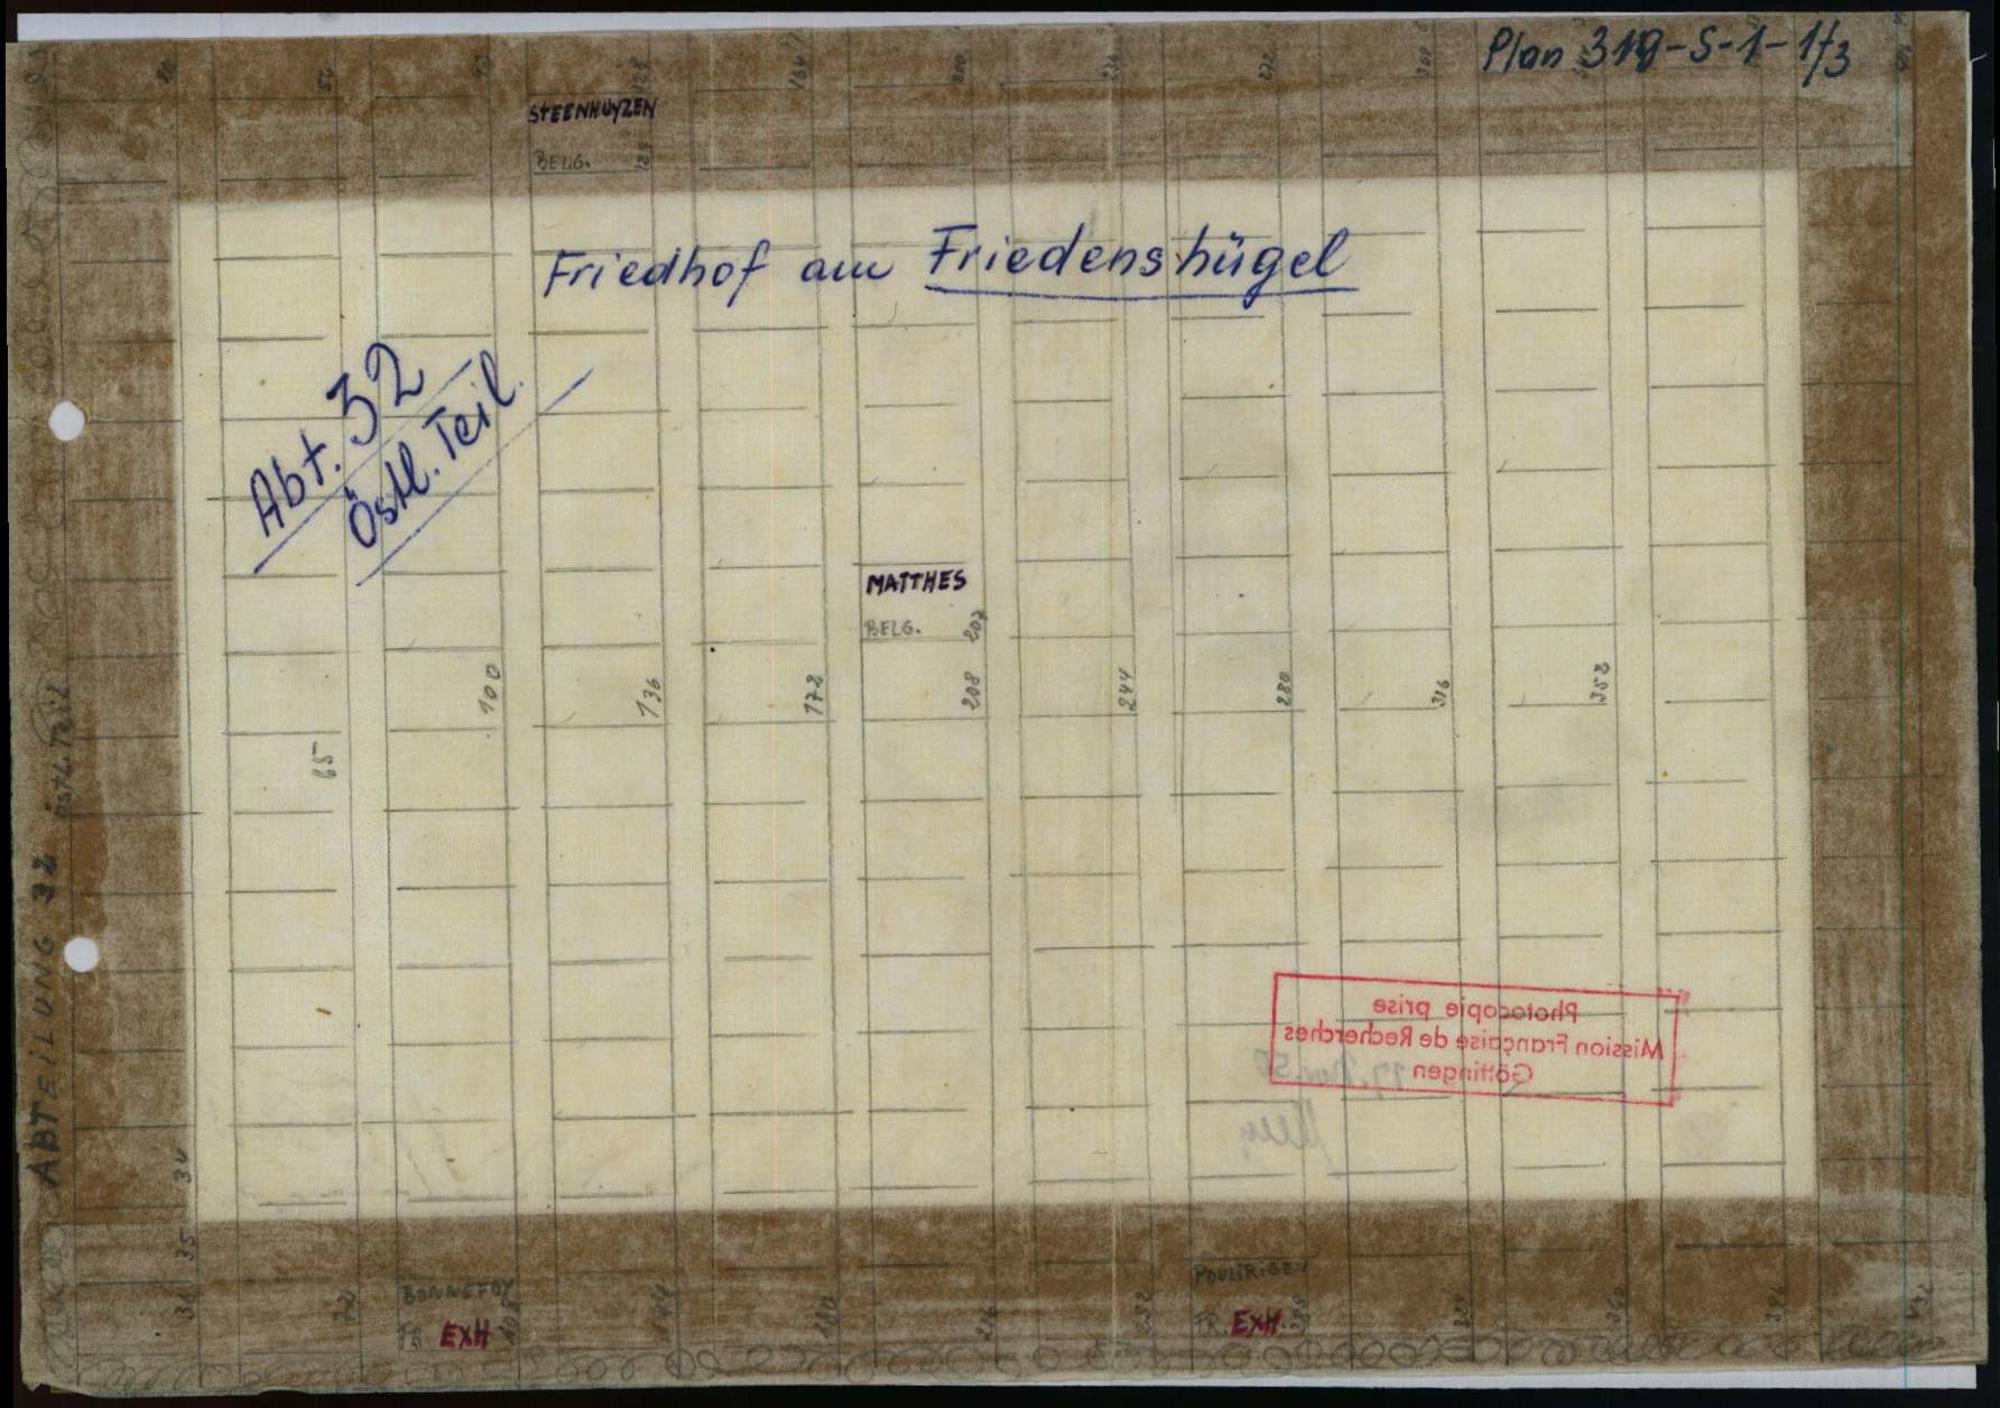 Plan 319-S-1-1/3
STEENHUYZEN
BELG.
Friedhof am Friedenshügel
Abt. 32
Östl. Teil.
MATTHES
BELG. 207
100
136
172
208
244
280
316
352
65
ABTEILUNG 32 ÖSTL. TEIL
Photocopie prise
Mission Française de Recherches
Göttingen
34
35
36
BONNEFOY
FR. EXH 108
144
180
216
252
FR. EXH. 288